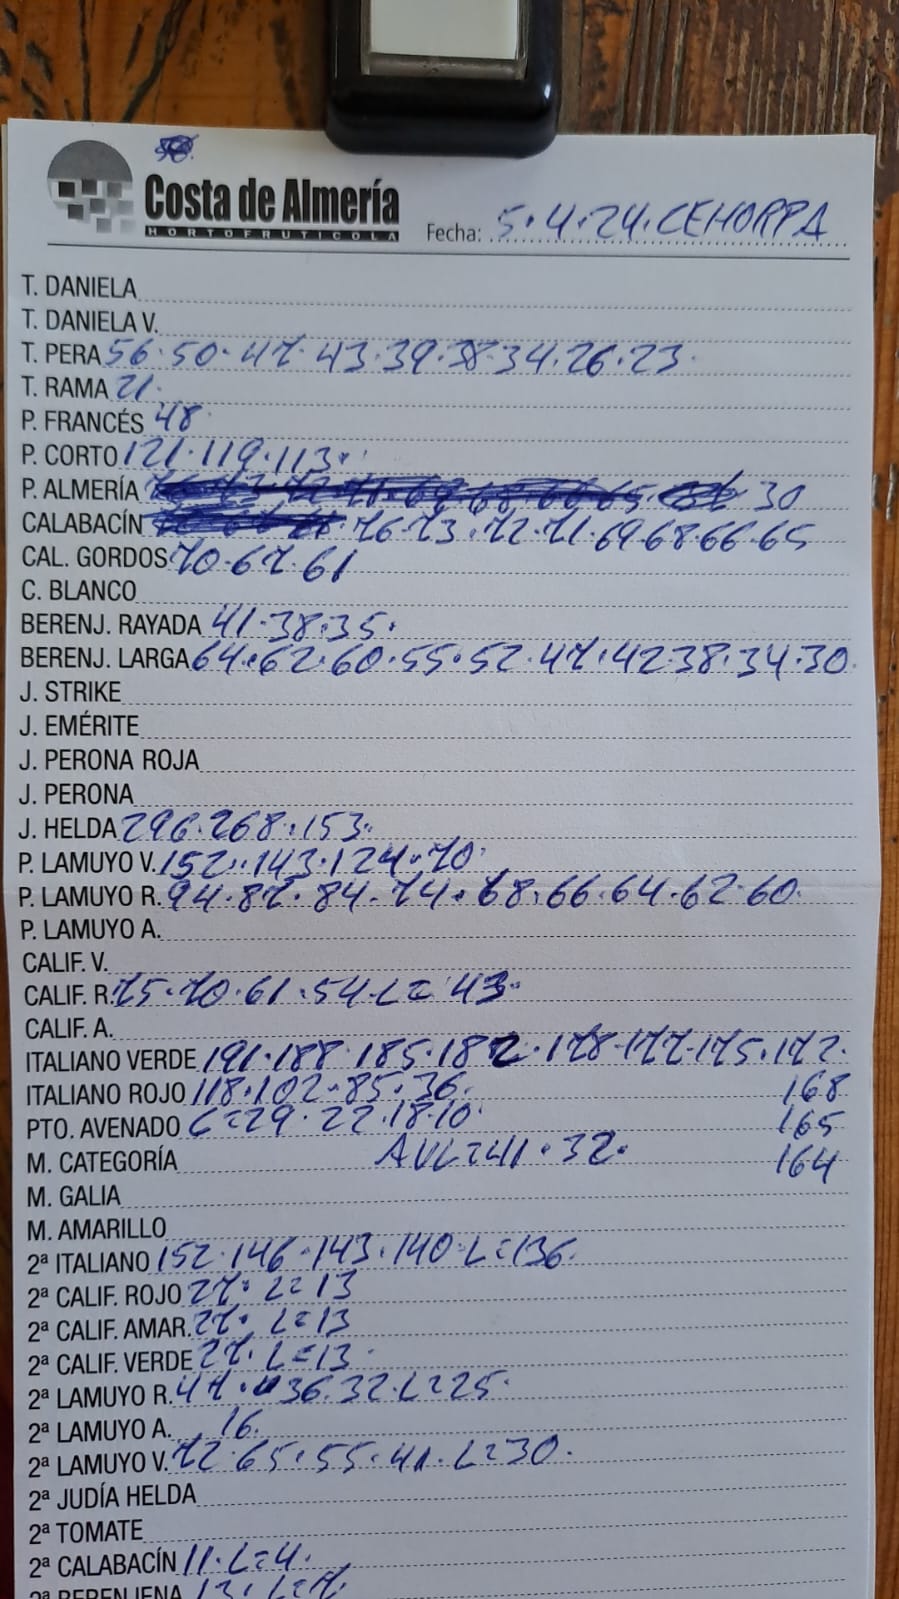 Costa de Almería
HORTOFRUTICOLA
Fecha: 5.4.24.CEHORPA
T. DANIELA
T. DANIELA V.
T. PERA 56.50.47.43.39.38.34.26.23.
T. RAMA 21.
P. FRANCÉS 48
P. CORTO 121.119.113.
P. ALMERÍA 30
CALABACÍN 76.73.72.71.69.68.66.65
CAL. GORDOS 70.67.61
C. BLANCO
BERENJ. RAYADA 41.38.35.
BERENJ. LARGA 64.62.60.55.52.47.42.38.34.30.
J. STRIKE
J. EMÉRITE
J. PERONA ROJA
J. PERONA
J. HELDA 296.268.153.
P. LAMUYO V. 152.143.124.70.
P. LAMUYO R. 94.87.84.74.68.66.64.62.60.
P. LAMUYO A.
CALIF. V.
CALIF. R. 75.70.61.54.L=43.
CALIF. A.
ITALIANO VERDE 191.188.185.182.178.177.175.172.
ITALIANO ROJO 118.102.85.36. 168
PTO. AVENADO C=29.22.18.10. 165
M. CATEGORÍA AVL=41.32. 164
M. GALIA
M. AMARILLO
2ª ITALIANO 152.146.143.140.L=136.
2ª CALIF. ROJO 27. L=13
2ª CALIF. AMAR. 27. L=13
2ª CALIF. VERDE 27. L=13.
2ª LAMUYO R. 47.36.32.L=25.
2ª LAMUYO A. 16.
2ª LAMUYO V. 72.65.55.41.L=30.
2ª JUDÍA HELDA
2ª TOMATE
2ª CALABACÍN 11.L=4.
2ª BERENJENA 13.